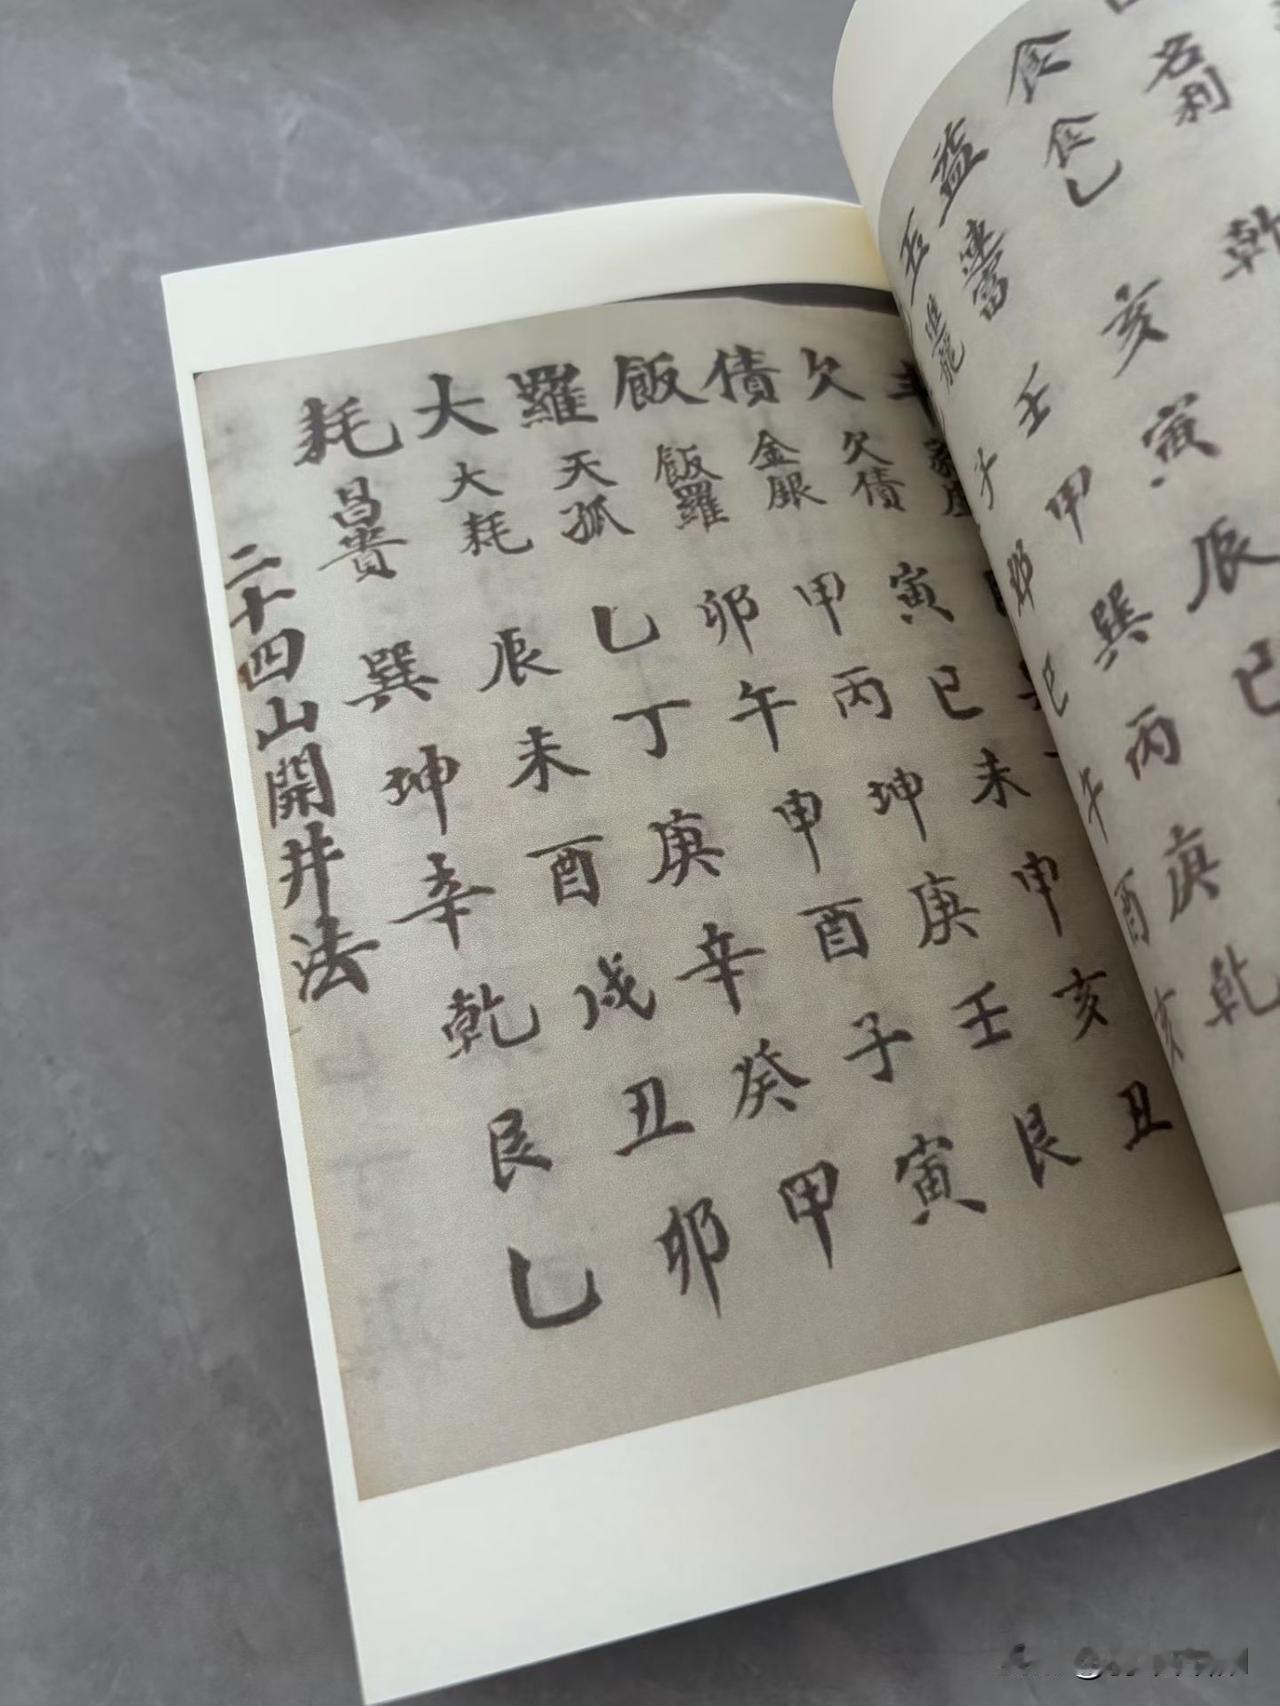 名利乾
食食乙亥寅辰巳
益連富壬甲巽丙庚乾
進龍子卯巳午酉亥
欠欠債寅巳未申亥丑
債金銀甲丙坤庚壬艮
飯飯羅卯午申酉子寅
羅天孤乙丁庚辛癸甲
大大耗辰未酉戌丑卯
耗昌貴巽坤辛乾艮乙
二十四山開井法